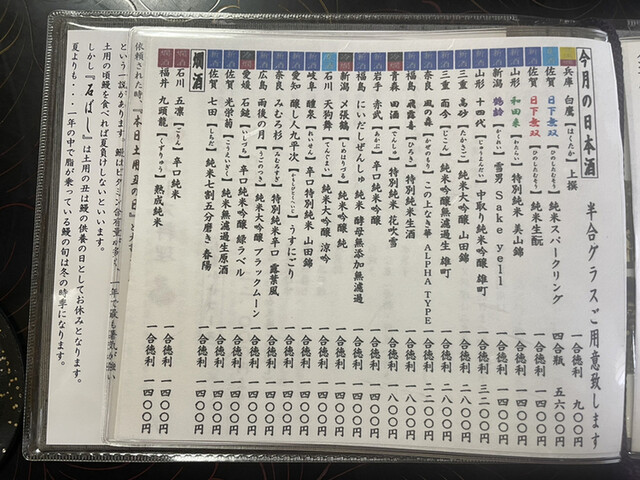 今月の日本酒 半合グラスご用意致します
兵庫 白鷹【はくたか】上撰 一合徳利 九〇〇円
佐賀 日下無双【ひのしたむそう】純米スパークリング 四合瓶 五六〇〇円
佐賀 日下無双【ひのしたむそう】純米生酛 一合徳利 一四〇〇円
山形 和田来【わたらい】特別純米 美山錦 一合徳利 一四〇〇円
新潟 鶴齢【かくれい】雪男 Sake yell 一合徳利 一四〇〇円
山形 十四代【じゅうよんだい】中取り純米吟醸 雄町 一合徳利 三二〇〇円
三重 高砂【たかさご】純米大吟醸 山田錦 一合徳利 一八〇〇円
三重 而今【じこん】純米吟醸無濾過生 雄町 一合徳利
奈良 風の森【かぜのもり】この上なき華 ALPHA TYPE 一合徳利
福島 飛露喜【ひろき】特別純米生酒 一合徳利 一八〇〇円
青森 田酒【でんしゅ】特別純米 花吹雪 一合徳利 一八〇〇円
岩手 赤武【あかぶ】純米吟醸 一合徳利 一四〇〇円
福島 にいだしぜんしゅ 純米 酵母無添加無濾過 一合徳利 一四〇〇円
新潟 〆張鶴【しめはりづる】純米吟醸 純 一合徳利 一四〇〇円
石川 天狗舞【てんぐまい】純米大吟醸 涼吟 一合徳利 一四〇〇円
岐阜 醴泉【れいせん】辛口特別純米 山田錦 一合徳利 一四〇〇円
愛知 醸し人九平次 うすにごり 一合徳利 一四〇〇円
奈良 みむろ杉【みむろすぎ】特別純米辛口 露葉風 一合徳利 一四〇〇円
広島 雨後の月【うごのつき】純米大吟醸 ブラックムーン 一合徳利 一四〇〇円
愛媛 石鎚【いしづち】辛口純米吟醸 緑ラベル 一合徳利 一四〇〇円
佐賀 光栄菊【こうえいぎく】純米無濾過生原酒 一合徳利 一四〇〇円
佐賀 七田【しちだ】純米七割五分磨き 春陽 一合徳利 一四〇〇円
燗酒
石川 五凛【ごりん】辛口純米 一合徳利 一四〇〇円
福井 九頭龍【くずりゅう】熟成純米 一合徳利 一四〇〇円
依頼された時、『本日土用丑の日』と
という一説があります。鰻はビタミン含有量が多く、一年で最も暑気が強い
土用の頃鰻を食べれば夏負けしないといいます。
しかし『石ばし』は土用の丑は鰻の供養の日としてお休みとなります。
夏よりも・・・一年の中で脂が乗っている鰻の旬は冬の時季になります。